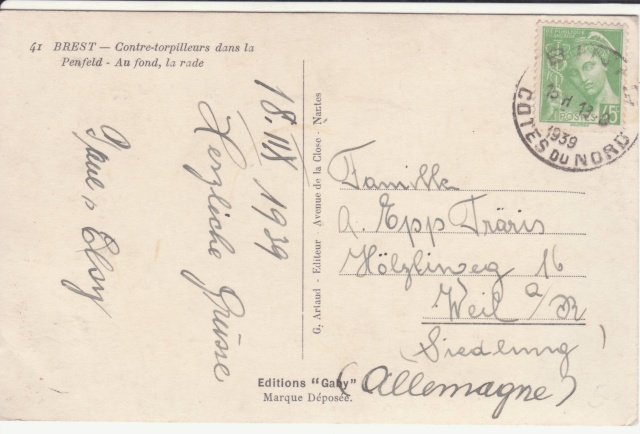 41 BREST — Contre-torpilleurs dans la
Penfeld - Au fond, la rade
18. VII 1939
Herzliche Grüsse
G. Artaud - Editeur - Avenue de la Close - Nantes
Editions "Gaby"
Marque Déposée.
POSTES
1939
COTES DU NORD
Familie
A. Epp Träris
Hölzliweg 16
Weil a/R
(Siedlung)
(Allemagne)